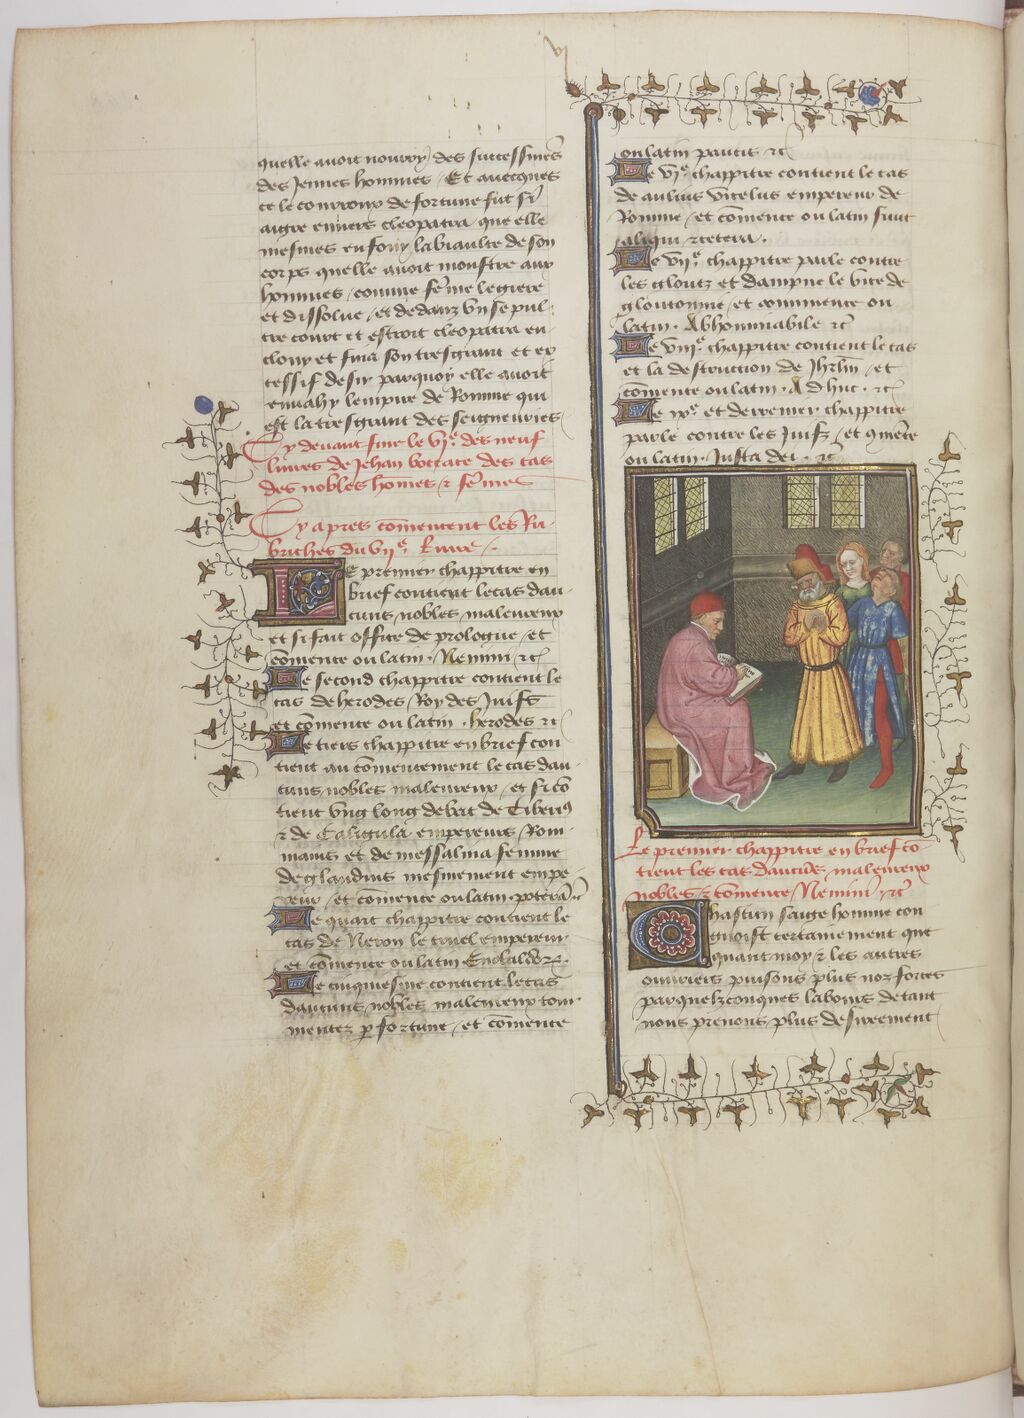 vi
quelle avoit nourry des successeurs
des Jennes hommes / Et avecques
ce le courroux de fortune fut si
aigre envers cleopatra que elle
mesmes enfouy la biaulte de son
corps quelle avoit monstre aux
hommes / comme feme legiere
et dissolue / et dedanz un sepul-
cre court et estroit cleopatra en-
clouy et fina son tresgrant et ex
cessif desir par quoy elle avoit
envahy lempire de Romme qui
est la tresgrant des seigneuries
Cy devant fine le vj.e des neuf
livres de Jehan boccace des cas
des nobles homes & femes
Cy apres comencent les Ru-
briches du vij.e livre.
Le premier chappitre en
brief contient le cas dau-
cuns nobles maleureux
et si fait office de prologue / et
comence ou latin . Nemini &c
Le second chappitre contient le
cas de herodes Roy des Juifs
et comence ou latin . herodes &c
Le tiers chappitre en brief con
tient au comencement le cas dau-
cuns nobles maleureux / et si co
tient ung long debat de Tiberi9
& de Caligula empereurs Rom-
mains et de messalina femme
de glaudius mesmement empe
reur / et comence ou latin
Le quart chappitre contient le
cas de Neron le cruel empereur
et comence ou latin
Le cinquiesme contient le cas
daucuns nobles maleureux tour-
mentez p fortune / et comence
ou latin paucis &c
Le vj.e chappitre contient le cas
de aulius vitelus empereur de
Romme / et comence ou latin sunt
aliqui &cetera .
Le vij.e chappitre parle contre
les gloutz et dampne le vice de
gloutonnie / et commence ou
latin . Abhominabile &c
Le viij.e chappitre contient le cas
et la destruction de Jhrlm / et
comence ou latin . Adhuc . &c
Le ix.e et derrenier chappitre
parle contre les Juifz / et 9mece
ou latin . Justa dei . &c
Le premier chappitre en brief co-
tient les cas daucuns maleureux
nobles & comence / Nemini &c
Chastun saige homme con
gnoist certainement que
quant moy & les autres
ouvriers puisons plus noz forces
par quelzconques labours de tant
nous prenons plus desireement